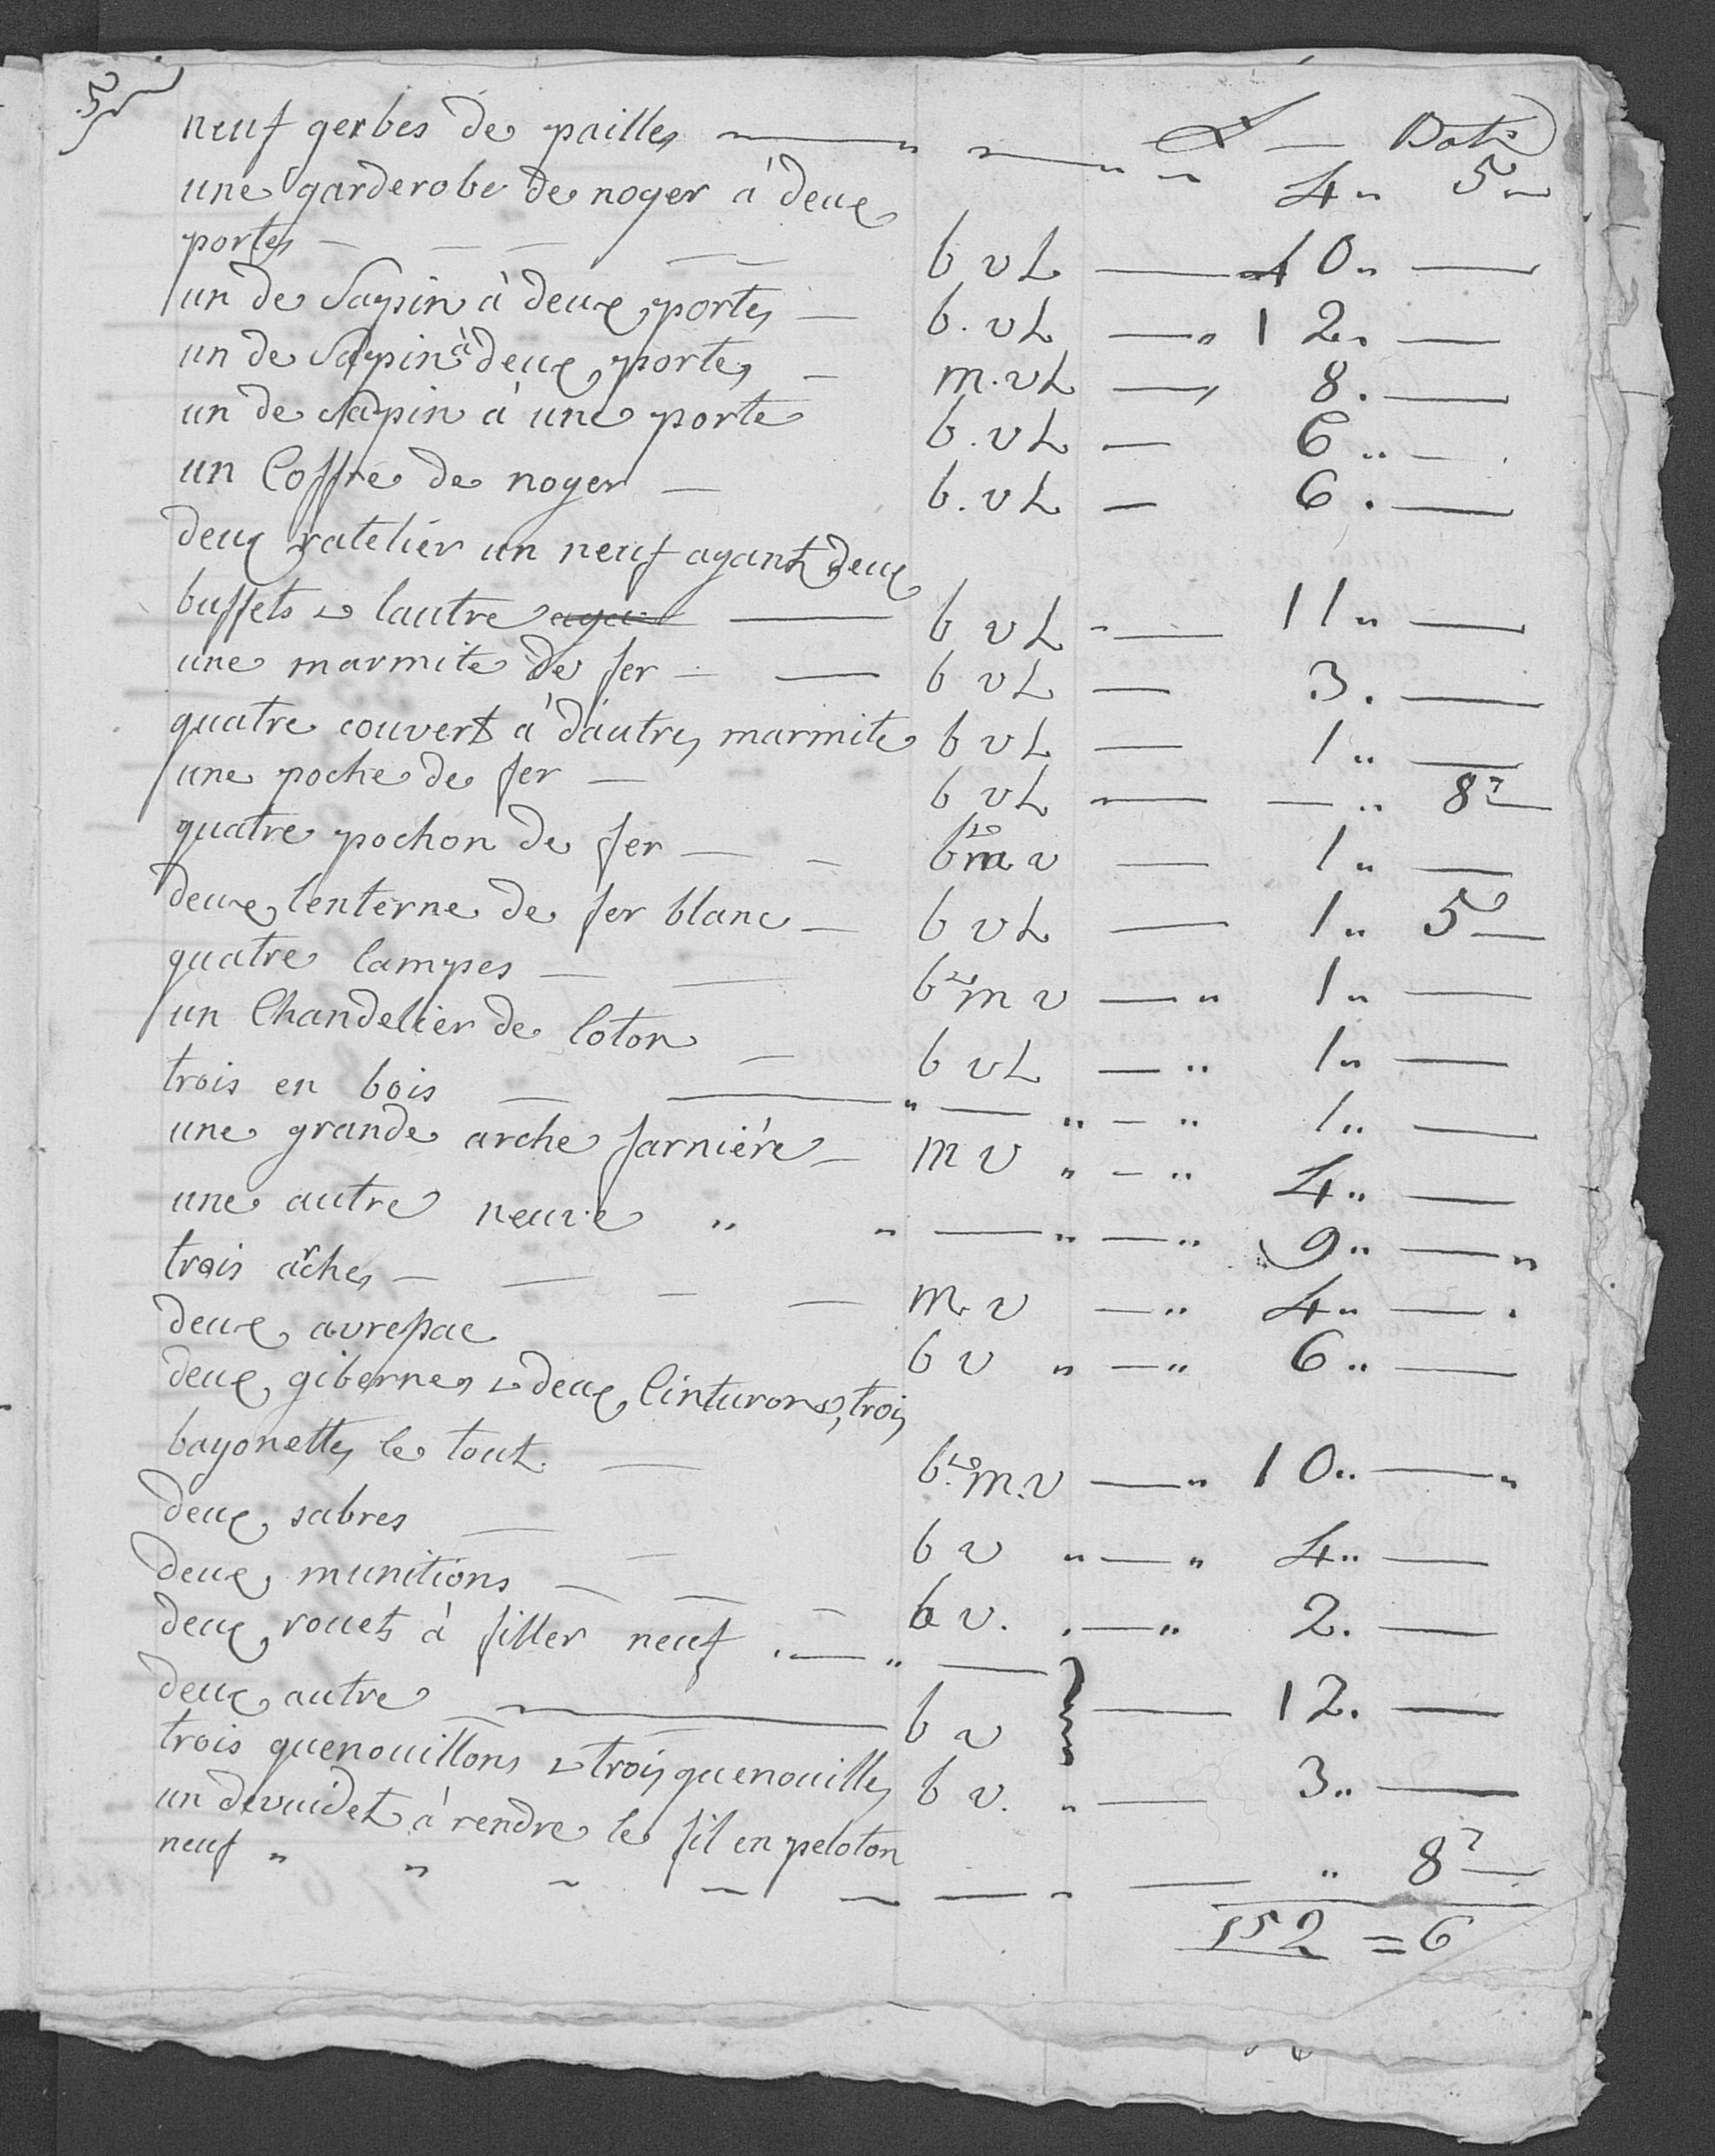 5
L — Batz
neuf gerbes de pailles — 4 " 5 —
une garderobe de noyer à deux
portes — b v L — 40 " —
un de Sapin à deux portes — b. v L — " 12. —
un de Sapin à deux portes — m. v L — 8. —
un de Sapin à une porte b. v L — 6 " —
un Coffre de noyer — b. v L — 6. —
deux ratelier un neuf ayant deux
buffets & lautre ayant — b v L — 11 " —
une marmite de fer — b v L — 3. —
quatre couvert à dautres marmite b v L — 1 " —
une poche de fer — b v L — " 8 —
quatre pochon de fer — b & m v — 1 " —
deux lenterne de fer blanc — b v L — 1 " 5 —
quatre lampes — b & m v — " 1 " —
un Chandelier de loton — b v L — " 1 " —
trois en bois — " — " — " 1 " —
une grande arche farnière — m v " — " 4 " —
une autre neuve " " — " — " 9 " — "
trois arches — m. v — " 4 " — .
deux avresac b v " — " 6 " —
deux gibernes & deux Cinturons, trois
bayonettes le tout. — b. & m. v — " 10 " — "
deux sabres — b v " — " 4 " —
deux munitions — b v. . — " 2. —
deux rouets à filler neuf . — " —
deux autre — b v } — 12. —
trois quenouillons & trois quenouilles b v. " — 3 " —
un devuidet à rendre le fil en peloton
neuf " " — " — " 8 —
152 = 6